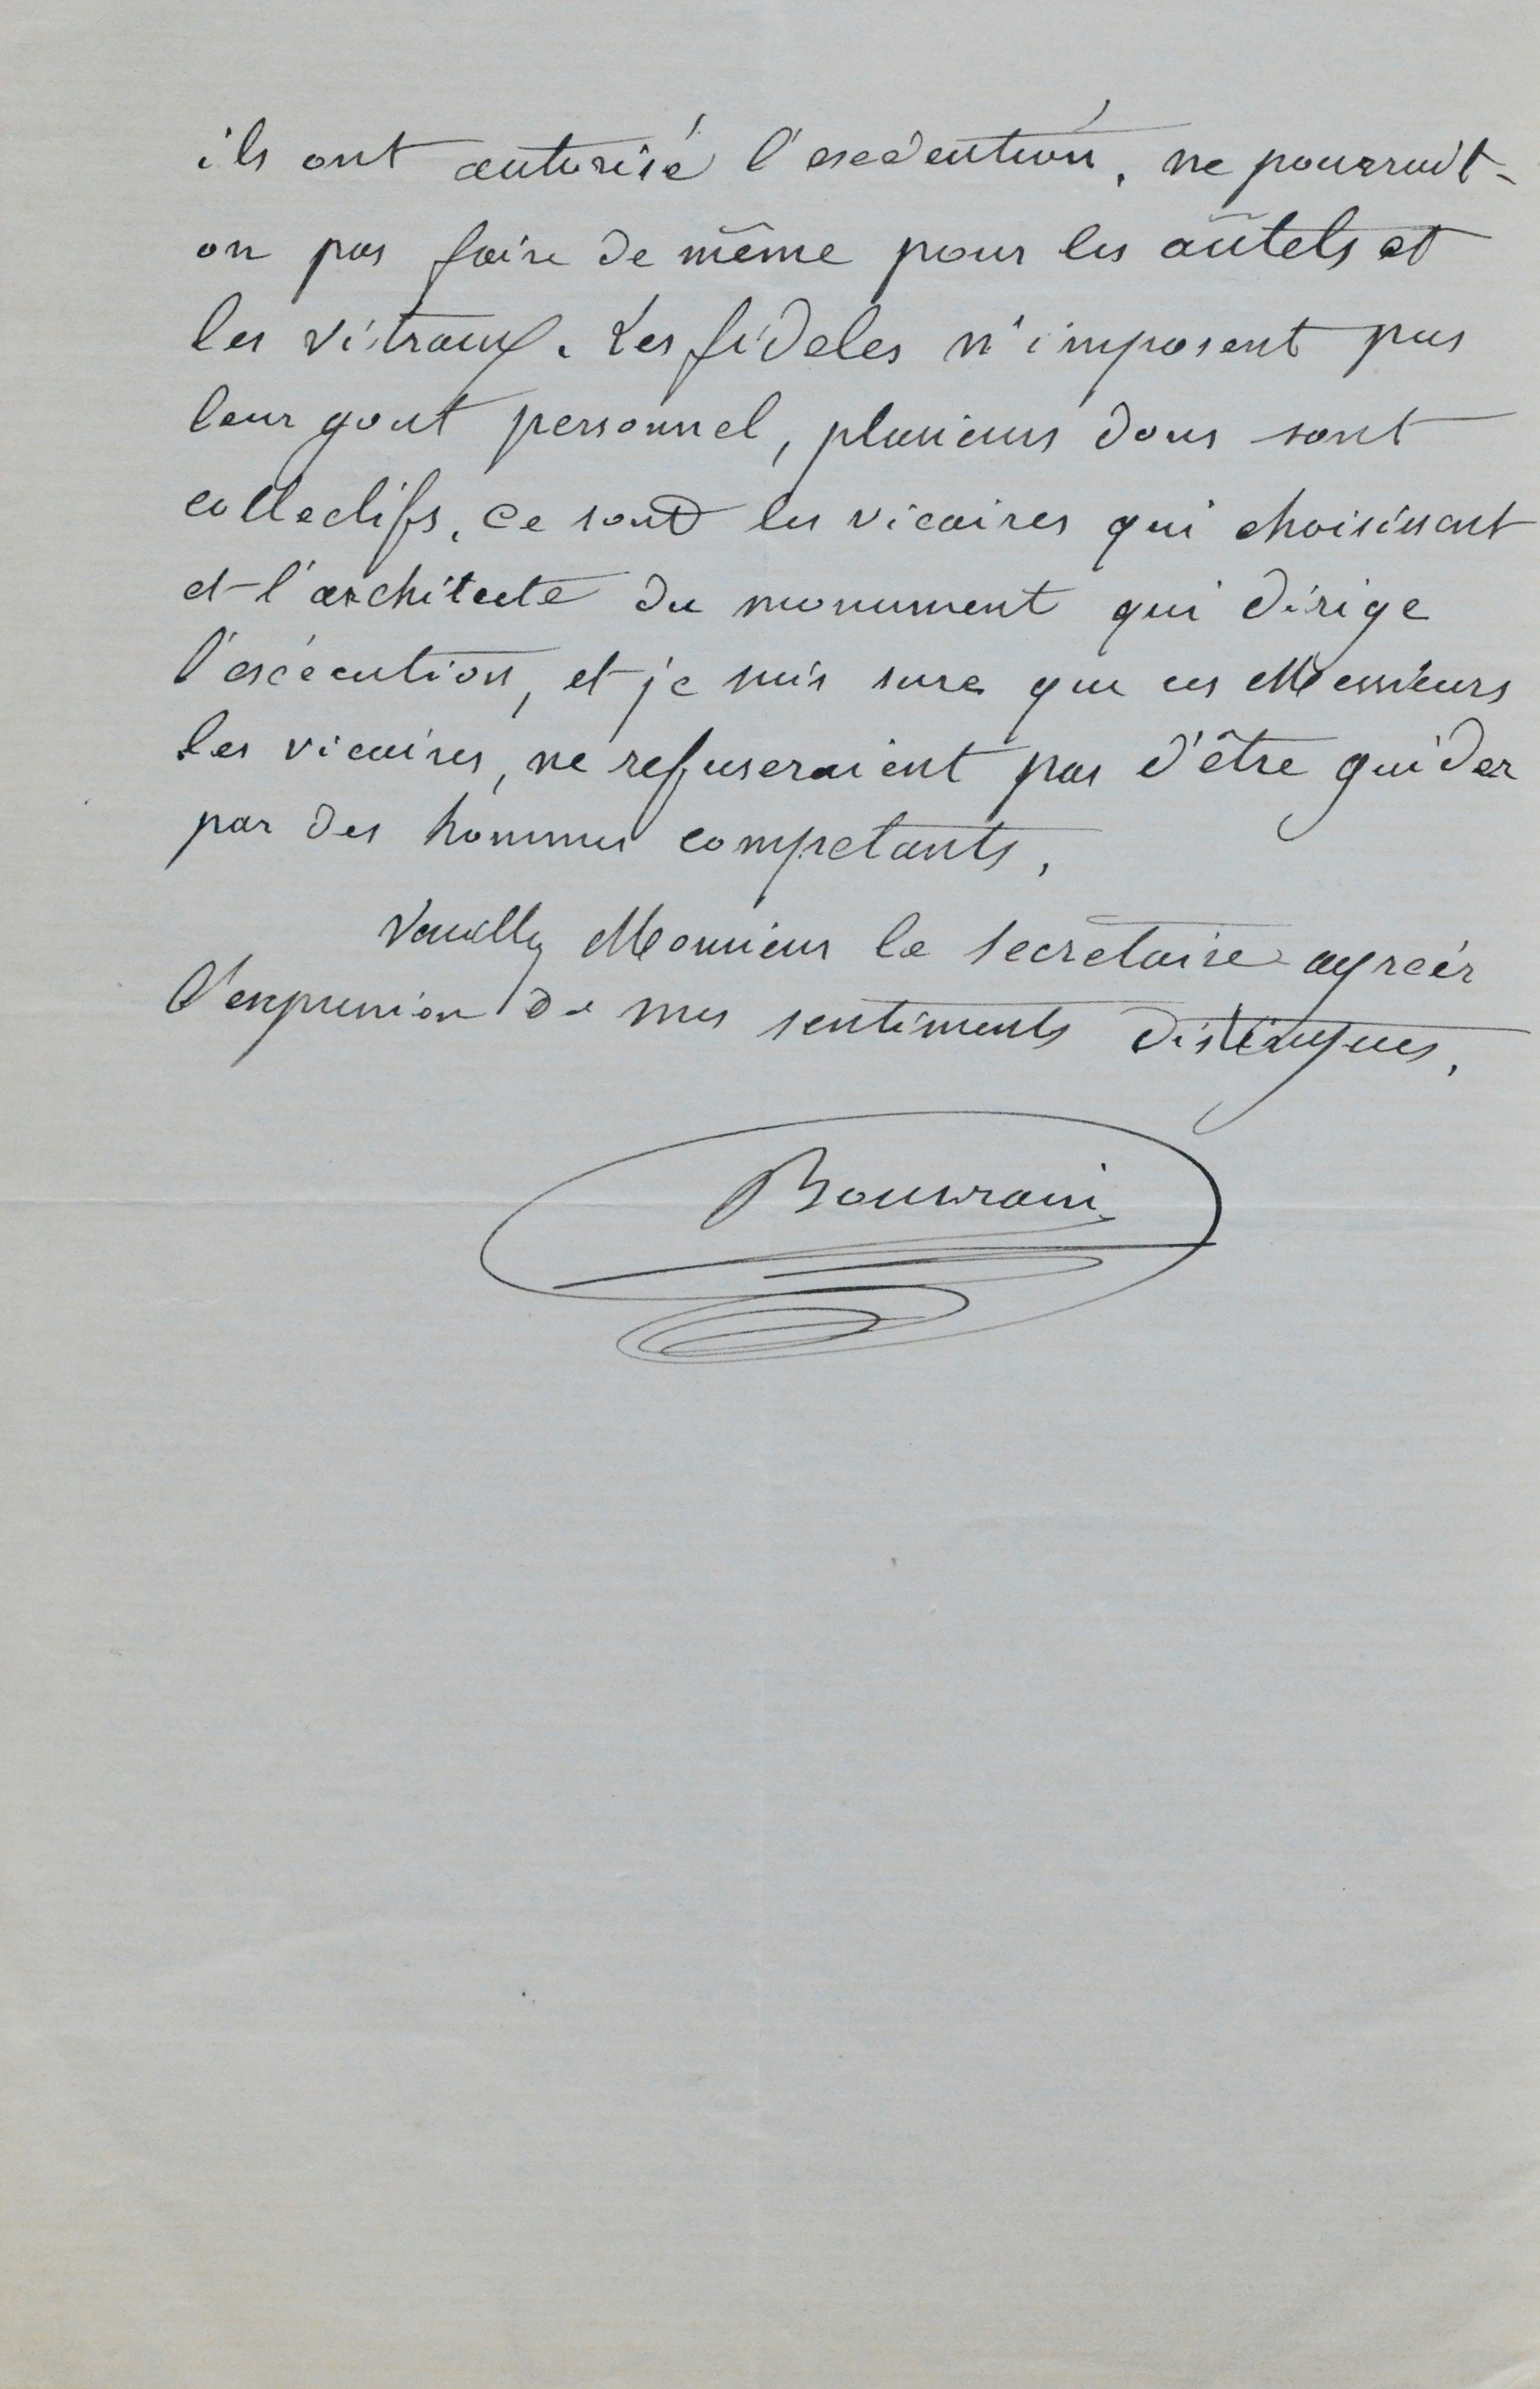 ils ont autorisé l'exécution, ne pourrait-
on pas faire de même pour les aûtels et
les vitraux. Les fideles n'imposent pas
leur gout personnel, plusieurs dons sont
collectifs, ce sont les vicaires qui choisissent
et l'architecte du monument qui dirige
l'exécution, et je suis sure que ces Messieurs
les vicaires, ne refuseraient pas d'être guider
par des hommes competants,
Veuillez Monsieur le secretaire agréér
l'expression de mes sentiments distingues,